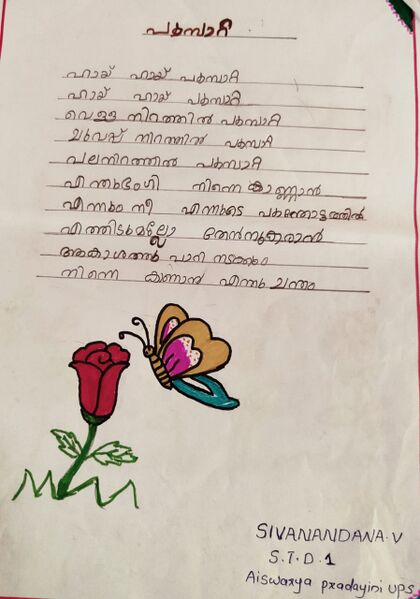 പൂമ്പാറ്റ
ഹായ് ഹായ് പൂമ്പാറ്റ
ഹായ് ഹായ് പൂമ്പാറ്റ
വെള്ള നിറത്തിൽ പൂമ്പാറ്റ
ചുവപ്പ് നിറത്തിൽ പൂമ്പാറ്റ
പലനിറത്തിൽ പൂമ്പാറ്റ
എന്തുഭംഗി നിന്നെ കാണാൻ
എന്നും നീ എന്നുടെ പൂന്തോട്ടത്തിൽ
എത്തിടുമല്ലോ തേൻനുകരാൻ
ആകാശത്തിൽ പാറി നടക്കും
നിന്നെ കാണാൻ എന്തു ചന്തം
SIVANANDANA.V
S.T.D.1
Aiswarya pradayini UPS